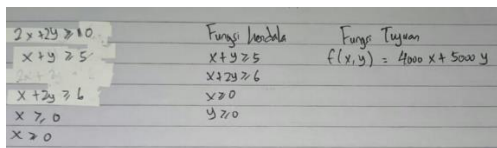 2x + 2y ≥ 10
x + y ≥ 5
x + 2y ≥ 6
x ≥ 0
x ≥ 0
Fungsi kendala
x + y ≥ 5
x + 2y ≥ 6
x ≥ 0
y ≥ 0
Fungsi Tujuan
f(x, y) = 4000 x + 5000 y